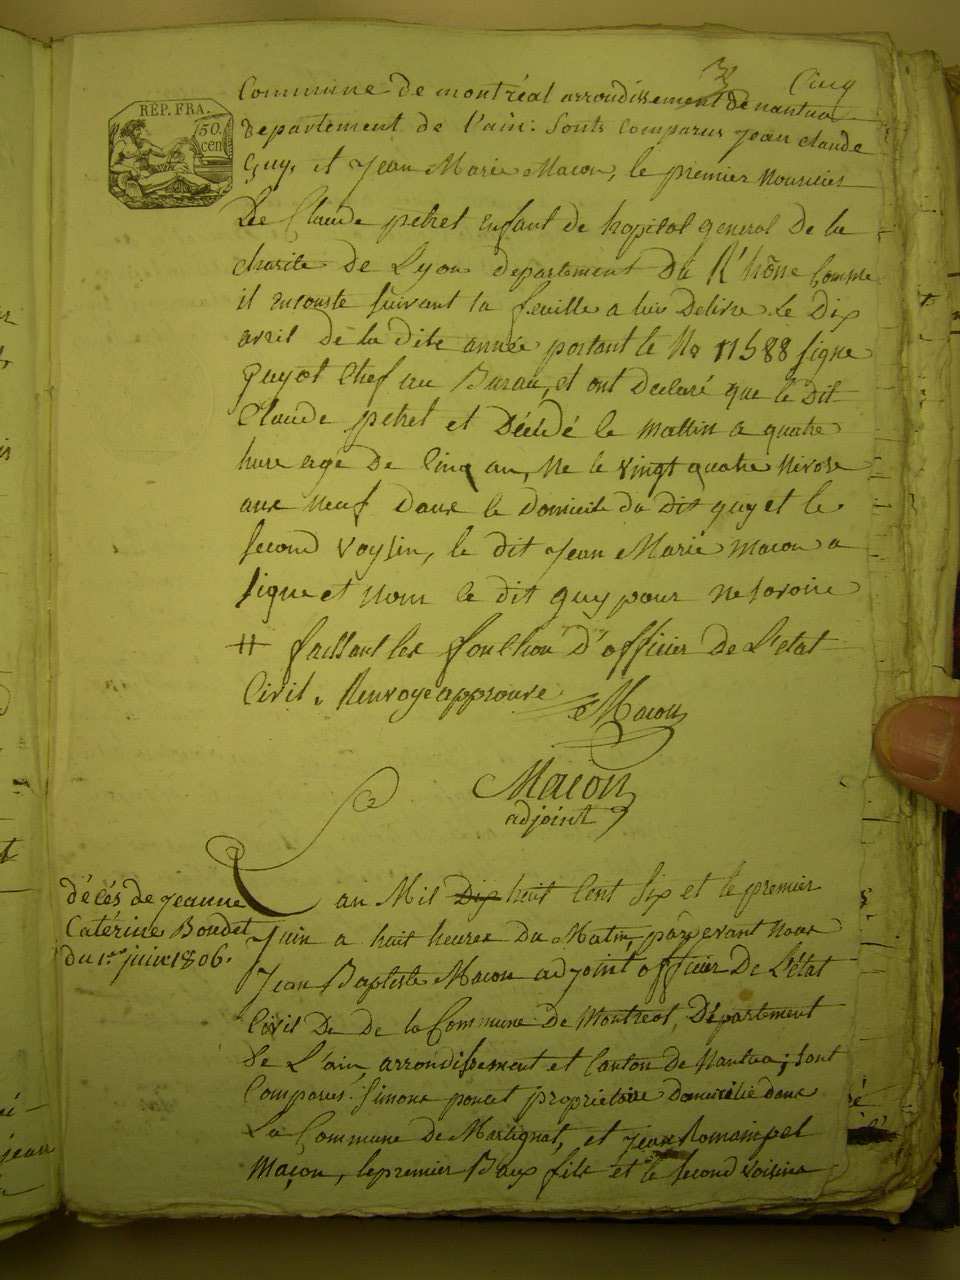 Cinq
REP. FRA.
50.
cen
Commune de montréal arrondissement de nantua
Departement de l'ain: Sonts comparus jean claude
Guy, et Jean Marie Macon, le premier nouricier
De Claude petret enfant de hopital general de la
charite de Lyon departement du R'hône comme
il enconste suivant la feuille a lui Delivre le Dix
avril de la dite année portant le No 11588 signe
guyot Chef au Burau, et ont declaré que le dit
Claude petret et Décédé le mattin a quatre
hure age de Cinq an, ne le vingt quatre nivose
ans neuf dans le domicile du dit guy et le
second voysin, le dit Jean Marie macon a
signe et nom le dit guy pour ne savoire
# faissant les fonction d'officier de L'etat
Civil. Renvoye approuve
Macon
Macon
adjoint
décés de jeanne
Catérine Boudet
du 1er juin 1806.
L an Mil Dix huit Cent Six et le premier
Juin a huit heures du Matin, pardevant Nous
Jean Baptiste Macon adjoint officier De L'état
Civil De de la Commune de Montreal, Département
de L'ain, arrondissement et Canton de Nantua; sont
Comparus Simons poncet propriétaire Domicilié dans
La Commune de Martignat, et jean Romain pel
Maçon, le premier Beaux fils et le second voisins